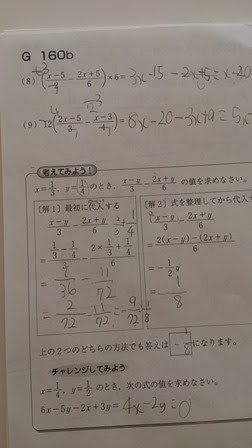 G 160b
(8) (x-5/3 - 2x+5/6)×6=3x-15-2x+5=x-20
(9) 12(2x-5/3 - x-3/4)=8x-20-3x+9=5x
考えてみよう!
x=1/3, y=1/4のとき, x-y/3 - 2x+y/6 の値を求めなさい。
[解1] 最初に代入する
x-y/3 - 2x+y/6
= 1/3-1/4/3 - 2×1/3+1/4/6
= 1/36 - 11/72
= 2/72 - 11/72 = -9/72
[解2] 式を整理してから代入
x-y/3 - 2x+y/6
= 2(x-y)-(2x+y)/6
= -1/2 y
= - 1/8
上の2つのどちらの方法でも答えは -1/8 になります。
チャレンジしてみよう
x=1/4, y=1/2 のとき, 次の式の値を求めなさい。
6x-5y-2x+3y=4x-2y=0